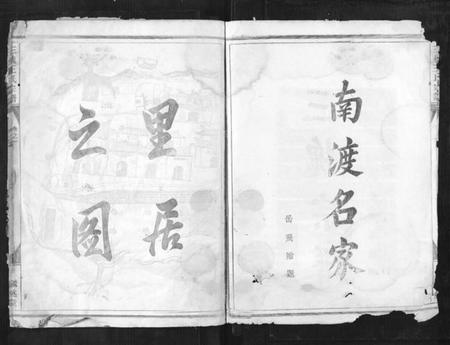 南渡名家
岳飛拾題
里居
之圖